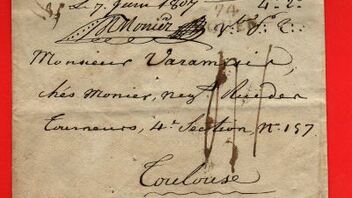 Le 7 Juin 1807
Monier
Monsieur Varampoir,
chés Monier, neg.t Rue des
Tourneurs, 4e Section N° 157
Toulouse